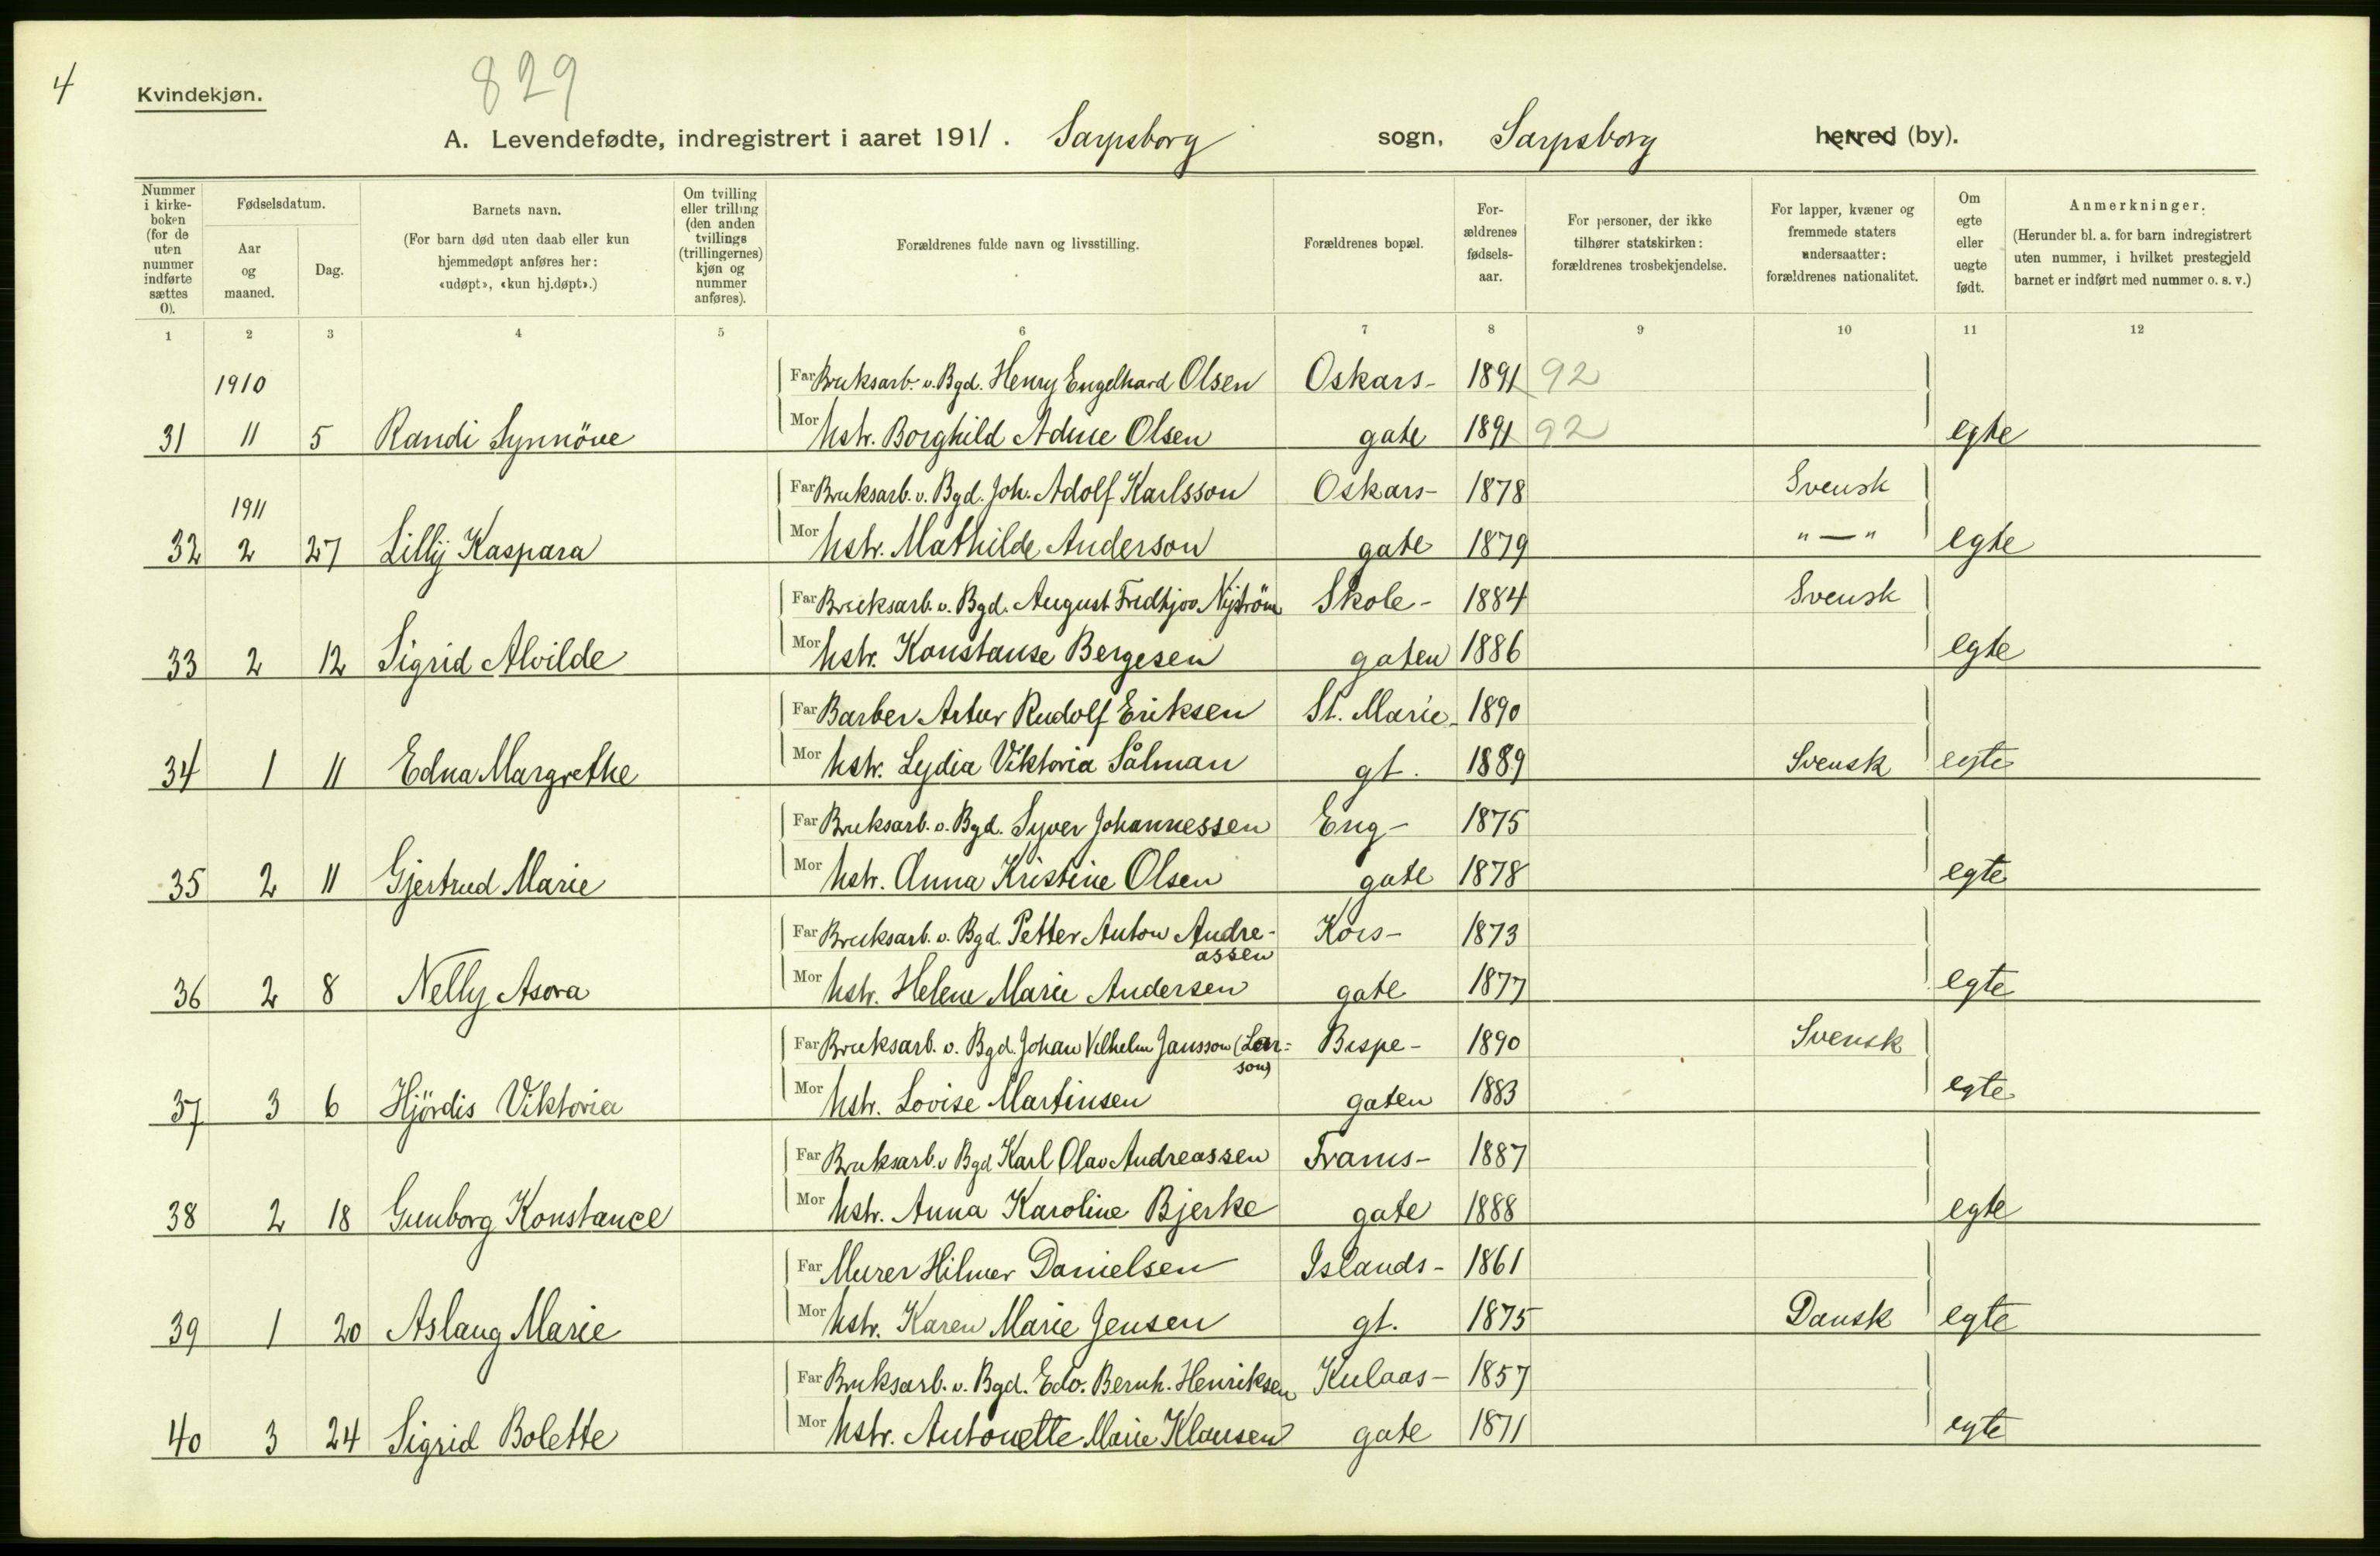 4
Kvindekjøn.
829
A. Levendefødte, indregistrert i aaret 1911. Sarpsborg sogn, Sarpsborg herred (by).
Nummer i kirkeboken (for de uten nummer indførte sættes 0).
Fødselsdatum.
Aar og maaned.
Dag.
Barnets navn.
(For barn død uten daab eller kun hjemmedøpt anføres her: «udøpt», «kun hj.døpt».)
Om tvilling eller trilling (den anden tvillings (trillingernes) kjøn og nummer anføres).
Forældrenes fulde navn og livsstilling.
Forældrenes bopæl.
For-
ældrenes
fødsels-
aar.
For personer, der ikke tilhører statskirken: forældrenes trosbekjendelse.
For lapper, kvæner og fremmede staters undersaatter: forældrenes nationalitet.
Om egte eller uegte født.
Anmerkninger.
(Herunder bl. a. for barn indregistrert uten nummer, i hvilket prestegjeld barnet er indført med nummer o. s. v.)
1 2 3 4 5 6 7 8 9 10 11 12
1910 Far Bruksarb. v. Bgd. Henry Engelhard Olsen Oskars- 1891 92
31 11 5 Randi Synnöve Mor Hstr. Borghild Adine Olsen gate 1891 92 egte
1911 Far Bruksarb. v. Bgd. Joh. Adolf Karlsson Oskars- 1878 Svensk
32 2 27 Lilly Kaspara Mor Hstr. Mathilde Anderson gate 1879 "—" egte
Far Bruksarb. v. Bgd. August Fredhjov Nyström Skole- 1884 Svensk
33 2 12 Sigrid Alvilde Mor Hstr. Konstanse Bergesen gaten 1886 egte
Far Barber Artur Rudolf Eriksen St. Marie- 1890
34 1 11 Edna Margrethe Mor Hstr. Lydia Viktoria Sålman gt. 1889 Svensk egte
Far Bruksarb. v. Bgd. Syver Johannessen Eng- 1875
35 2 11 Gjertrud Marie Mor Hstr. Anna Kristine Olsen gate 1878 egte
Far Bruksarb. v. Bgd. Petter Anton Andre-
assen Kors- 1873
36 2 8 Nelly Asora Mor Hstr. Helene Marie Andersen gate 1877 egte
Far Bruksarb. v. Bgd. Johan Vilhelm Jansson (Lar=
son) Bispe- 1890 Svensk
37 3 6 Hjördis Viktoria Mor Hstr. Lovise Martinsen gaten 1883 egte
Far Bruksarb. v Bgd Karl Olav Andreassen Frams- 1887
38 2 18 Gunborg Konstance Mor Hstr. Anna Karoline Bjerke gate 1888 egte
Far Murer Hilmer Danielsen Islands- 1861
39 1 20 Aslaug Marie Mor Hstr. Karen Marie Jensen gt. 1875 Dansk egte
Far Bruksarb. v. Bgd. Edv. Bernh. Henriksen Kulaas- 1857
40 3 24 Sigrid Bolette Mor Hstr. Antonette Marie Klausen gate 1871 egte